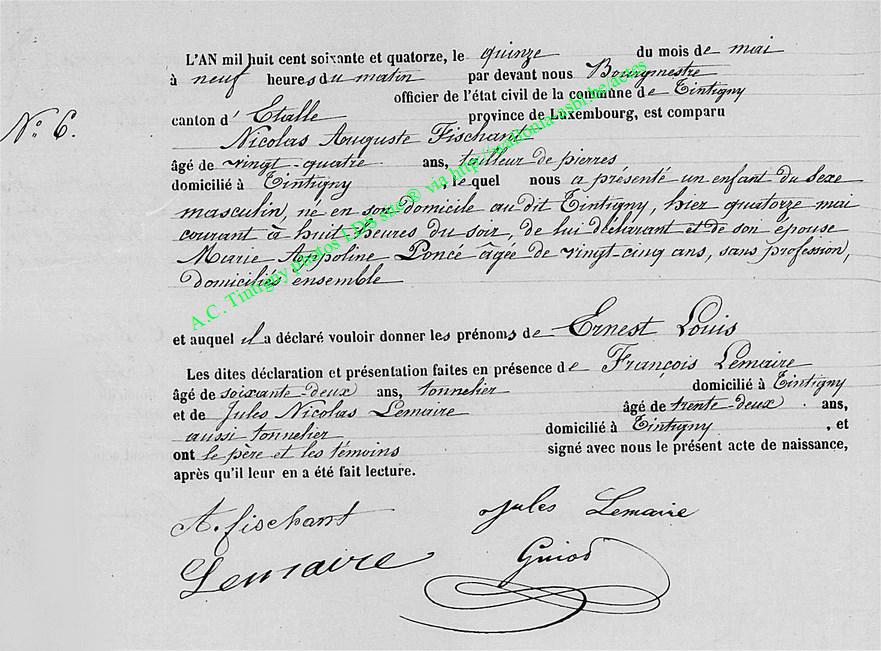 L'AN mil huit cent soixante et quatorze, le quinze du mois de mai
à neuf heures du matin par devant nous Bourgmestre
officier de l'état civil de la commune de Tintigny
canton d' Etalle province de Luxembourg, est comparu
N° 6.
Nicolas Auguste Fischant
âgé de vingt-quatre ans, tailleur de pierres
domicilié à Tintigny , lequel nous a présenté un enfant du sexe
masculin, né en son domicile au dit Tintigny, hier quatorze mai
courant à huit heures du soir, de lui déclarant et de son épouse
Marie Appoline Poncé âgée de vingt-cinq ans, sans profession,
domiciliés ensemble
et auquel il a déclaré vouloir donner les prénoms de Ernest Louis
Les dites déclaration et présentation faites en présence de François Lemaire
âgé de soixante-deux ans, tonnelier domicilié à Tintigny
et de Jules Nicolas Lemaire âgé de trente-deux ans,
aussi tonnelier domicilié à Tintigny , et
ont le père et les témoins signé avec nous le présent acte de naissance,
après qu'il leur en a été fait lecture.
A. fischant Jules Lemaire
Lemaire Guiod
A.C. Tintigny photos LDS site® via